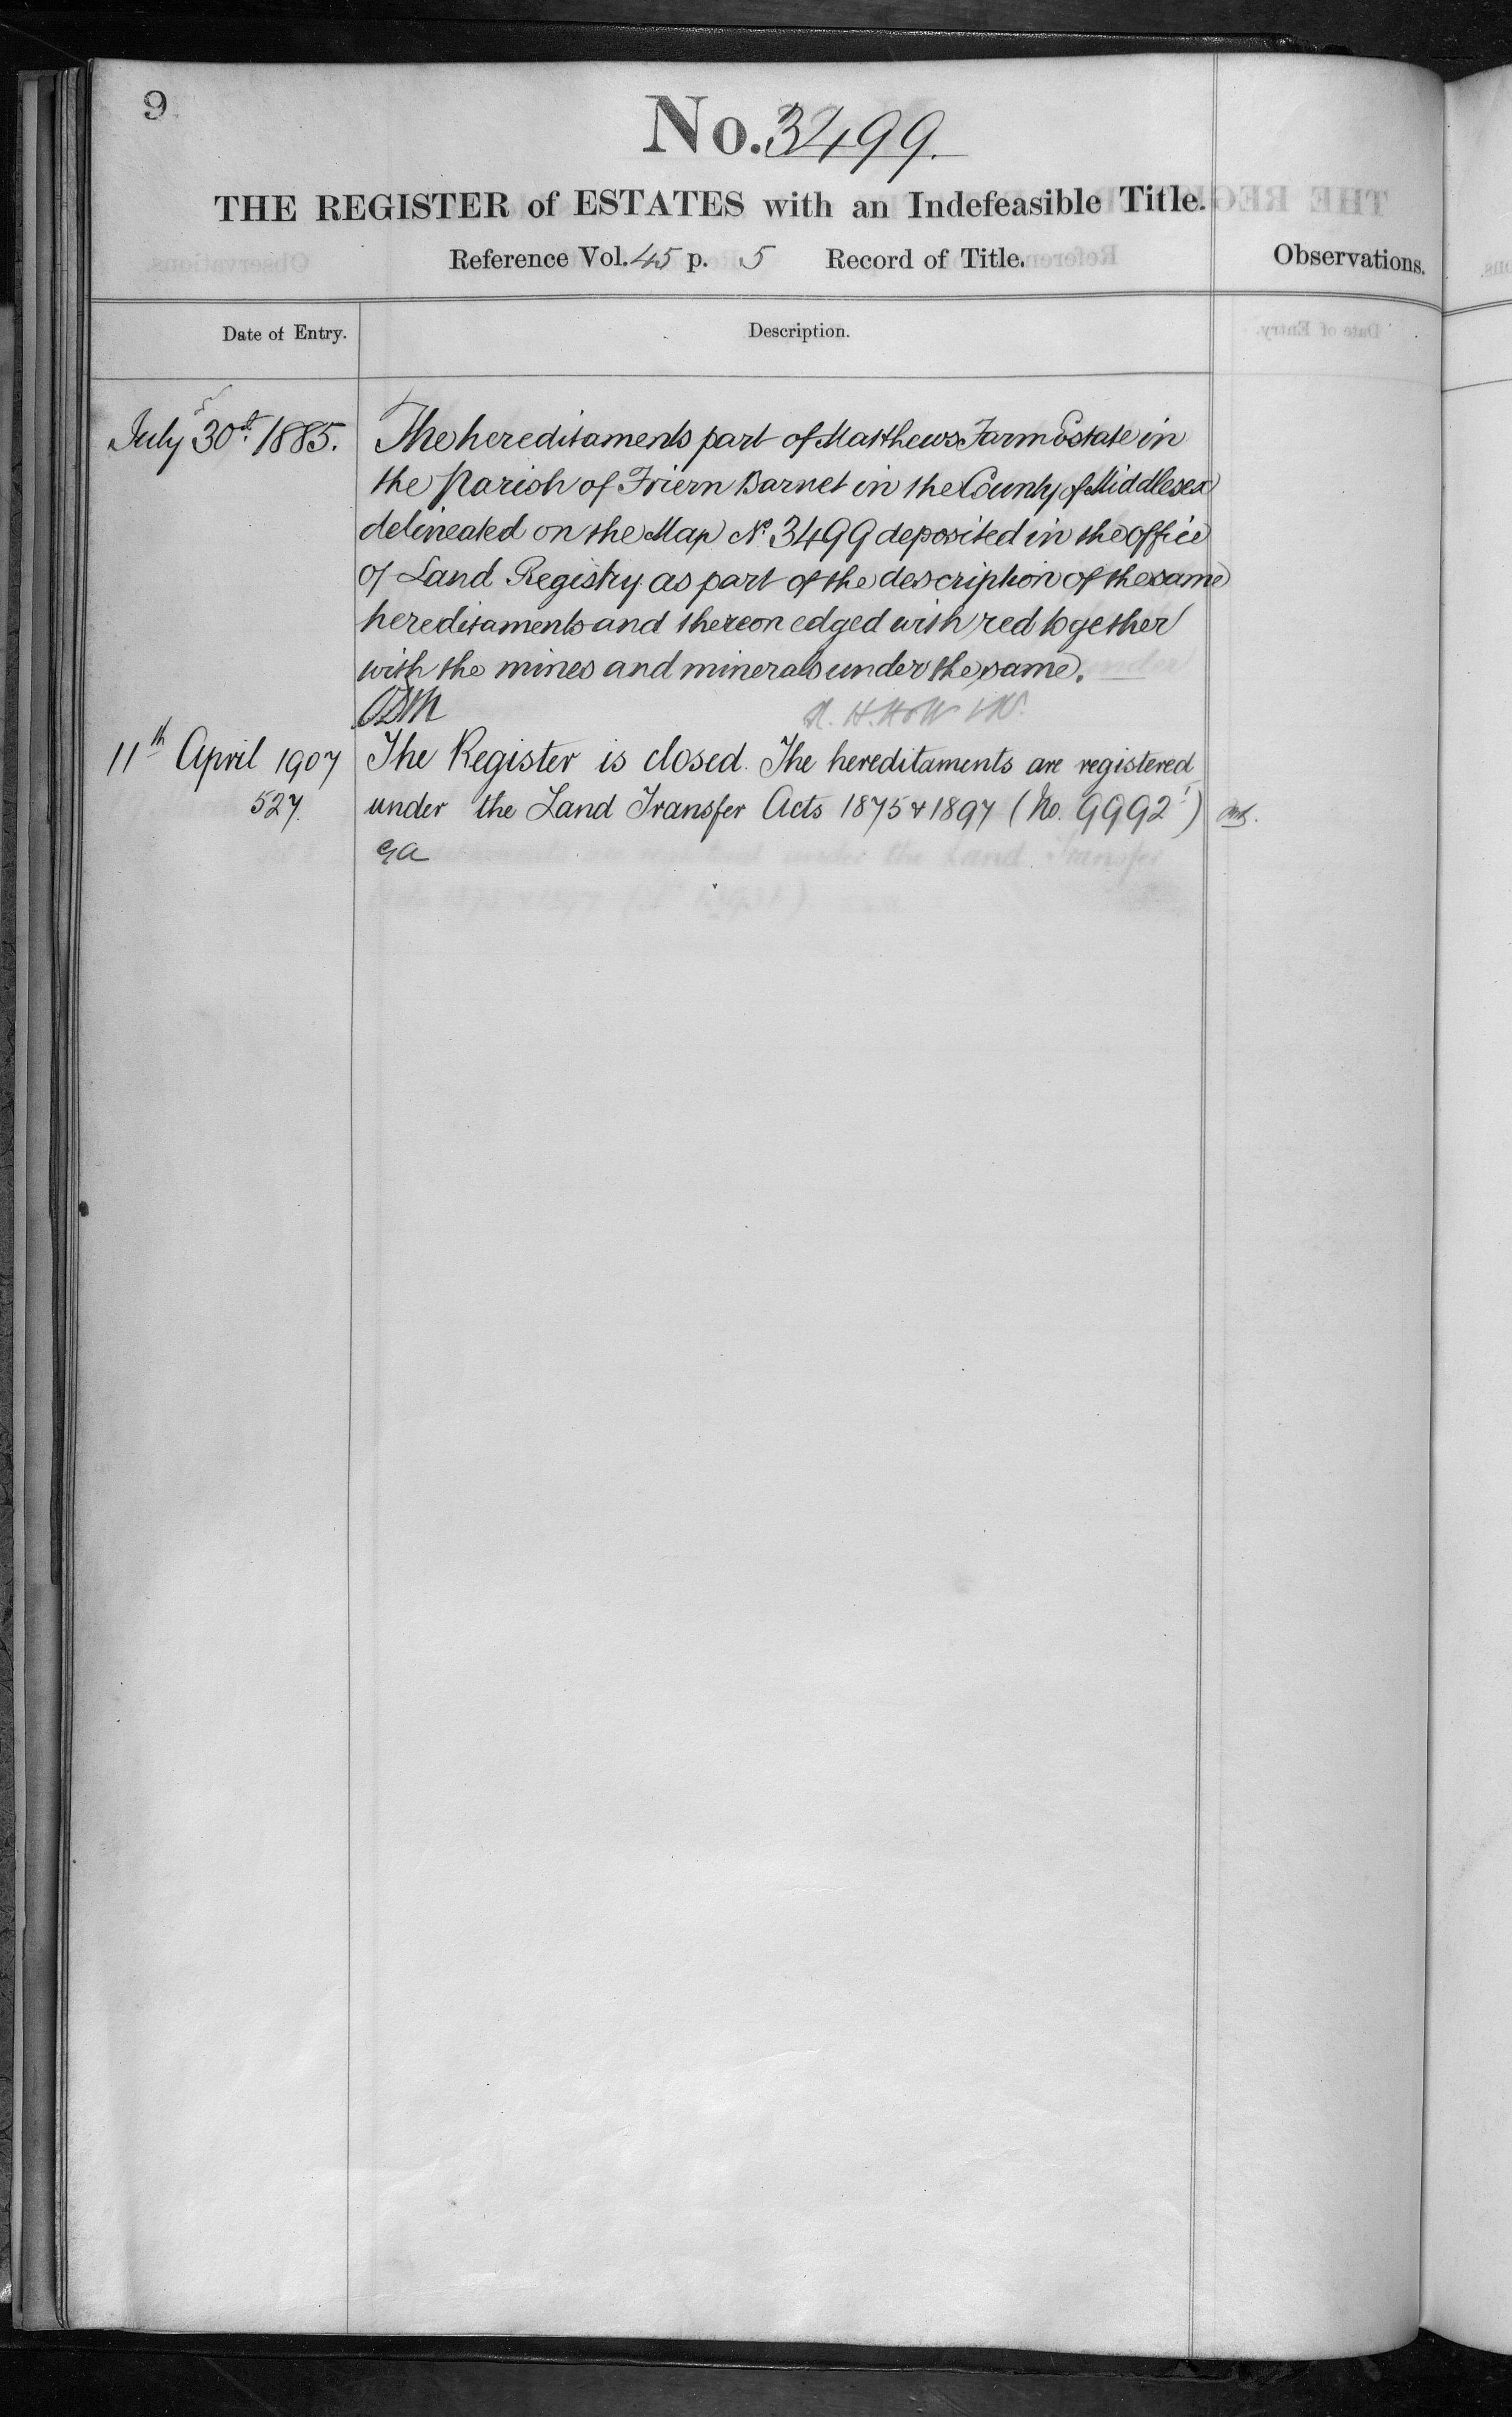 9
No. 3499.
THE REGISTER of ESTATES with an Indefeasible Title.
Reference Vol. 45 p. 5 Record of Title.
Observations.
Date of Entry.
Description.
July 30th 1885.
The hereditaments part of Matthews Farm Estate in
the Parish of Friern Barnet in the County of Middlesex
delineated on the Map No. 3499 deposited in the office
of Land Registry as part of the description of the same
hereditaments and thereon edged with red together
with the mines and minerals under the same.
11th April 1907
The Register is closed. The hereditaments are registered
527.
under the Land Transfer Acts 1875 & 1897 (No. 9992)